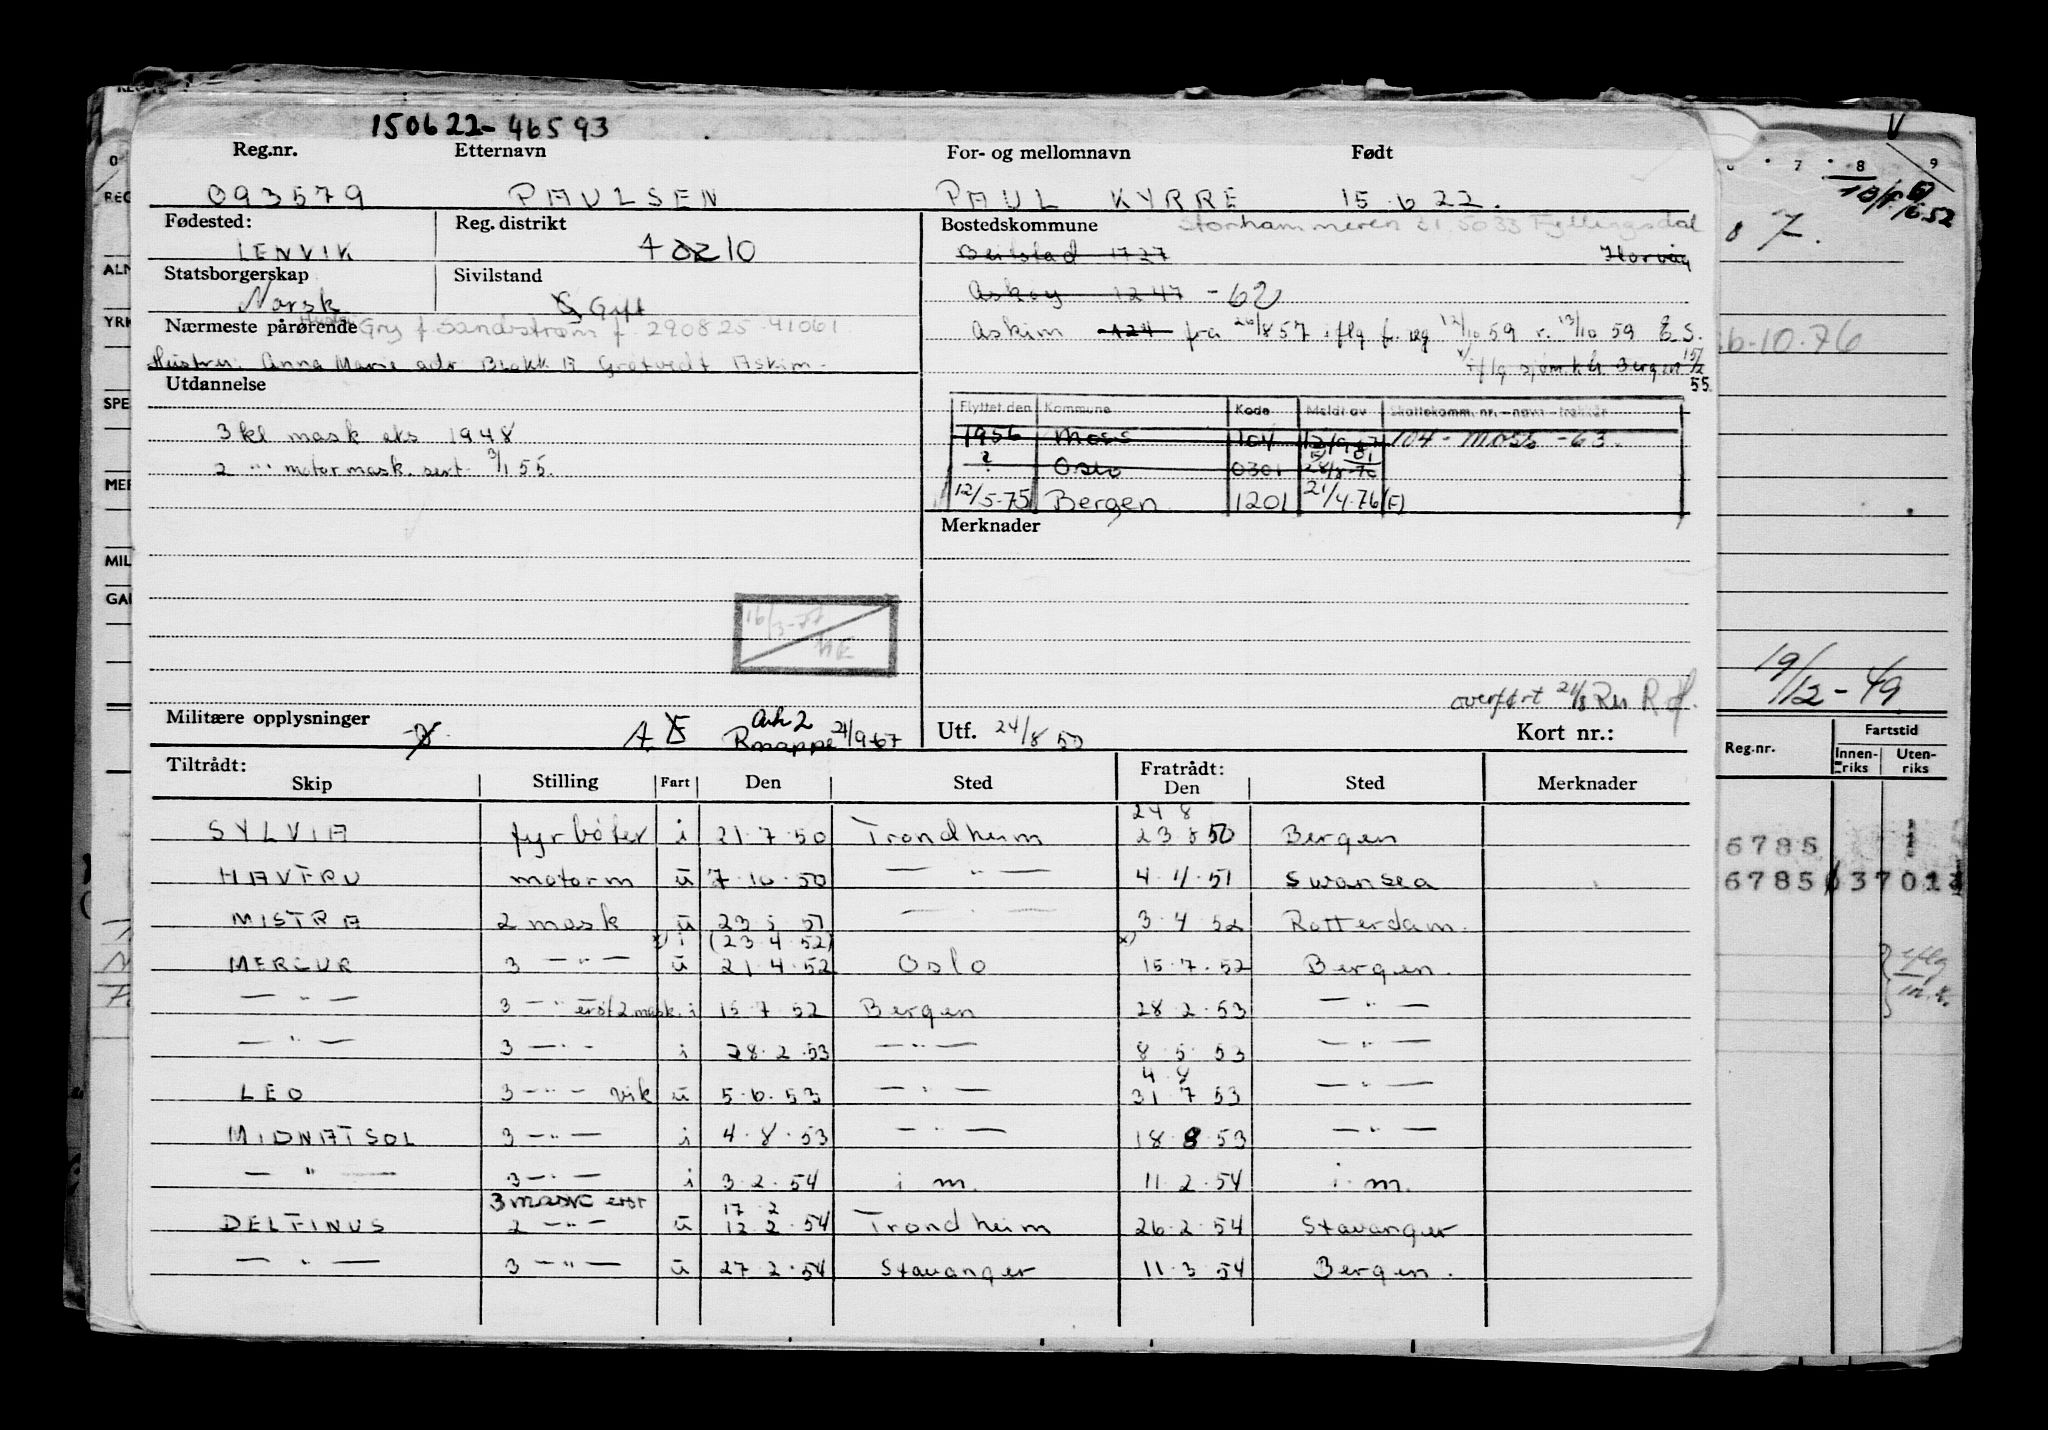 150622-46593
Reg.nr. Etternavn For- og mellomnavn Født
093579 PAULSEN PAUL KYRRE 15.6 22.
Fødested: Reg. distrikt Bostedskommune Storhammeren 5033 Fyllingsdal
LENVIK 10 Beitstad 1727
Statsborgerskap Sivilstand
Norsk Gift Askøy 1247 - 62
Nærmeste pårørende Gry f Sandstrøm f. 290825-41061
Askim 124 fra 26/8 57 iflg f. reg 12/10 59 r. 13/10 59 E.S.
Hustru: Anna Marie adr Blokk Grøtvedt Askim -
iflg sjøm.k. Bergen 15/2 55.
Utdannelse
Flyttet den Kommune Kode Meldt av Skattekomm. nr. - navn - trekkår
3 kl mask eks 1948
1956 Moss 104 104 - MOSS - 63.
2 -"- motormask. sert. 3/1 55.
? Oslo 0301 28/8-70
12/5-75 Bergen 1201 21/4-76 (F)
Merknader
overført 21/8
Militære opplysninger Ark 2 Rmappe 21/9-67 Utf. 24/8 50 Kort nr.:
Tiltrådt: Fratrådt:
Skip Stilling Fart Den Sted Den Sted Merknader
24 8
SYLVIA fyrbøter i 21.7.50 Trondheim 23.8 50 Bergen
HAVFRU motorm u 7.10.50 — " — 4.11.51 Swansea
MISTRA 2 mask u 23 5 51 — " — 3.4.52 Rotterdam.
x) i (23.4.52) x)
MERCUR 3 — " — u 21.4.52 Oslo 15.7.52 Bergen.
— " — 3 — " — 2 mask. i 15.7.52 Bergen 28.2.53 — " —
— " — 3 — " — i 28.2.53 — " — 8.5.53 — " —
4.8
LEO 3 — " — vik u 5.6.53 — " — 31 7 53 — " —
MIDNATSOL 3 — " — i 4.8.53 — " — 18 8 53 — " —
— " — 3 — " — i 3.2.54 i m. 11.2.54 i.m.
3 mask 17 2
DELFINUS 2 — " — u 12 2.54 Trondheim 26.2.54 Stavanger
— " — 3 — " — u 27.2.54 Stavanger 11.3.54 Bergen.
7 8 9
7.
6-10-76
19/12-49
Reg.nr. Fartstid
Innenriks Utenriks
6785
6785
iflg